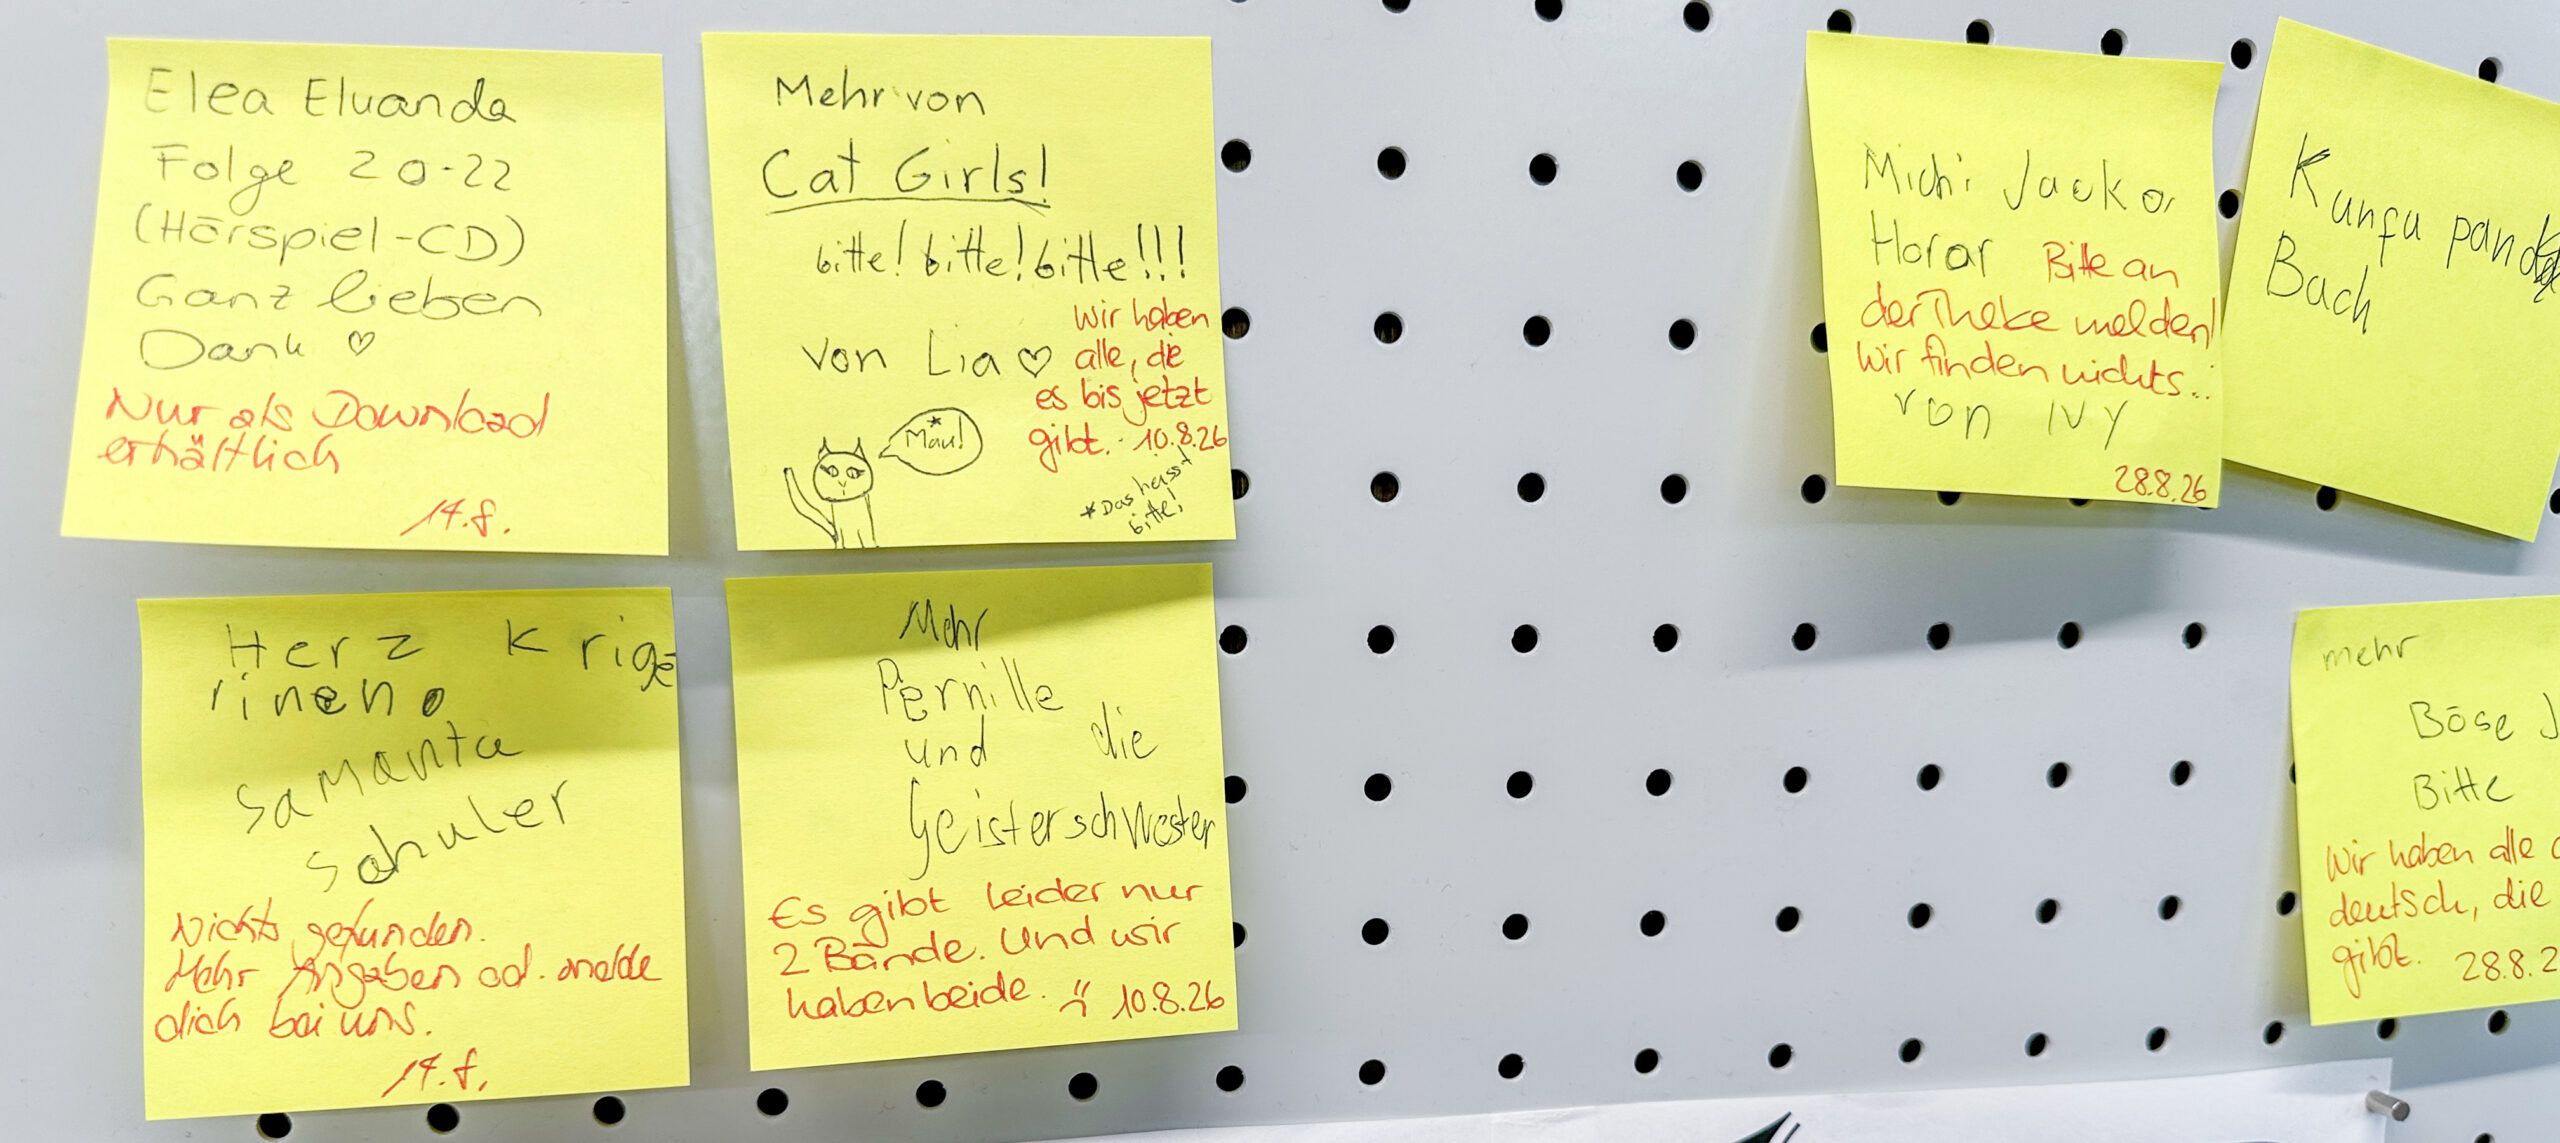 Elea Eluanda
Folge 20-22
(Hörspiel-CD)
Ganz lieben
Dank ♡
Nur als Download
erhältlich
14.8.
Mehr von
Cat Girls!
bitte! bitte! bitte!!!
von Lia ♡
Wir haben
alle, die
es bis jetzt
gibt. 10.8.26
Mau!*
*Das heisst
bitte!
Michi Jackor
Horar
Bitte an
der Theke melden!
Wir finden nichts..
von IVY
28.8.26
Kunfu panda
Buch
Herz Krige
rinen.
Samanta
Schuler
Nichts gefunden.
Mehr Angaben od. melde
dich bei uns.
14.8.
Mehr
Pernille
und die
Geisterschwester
Es gibt leider nur
2 Bände. Und wir
haben beide. 10.8.26
mehr
Böse J
Bitte
Wir haben alle
deutsch, die
gibt. 28.8.2